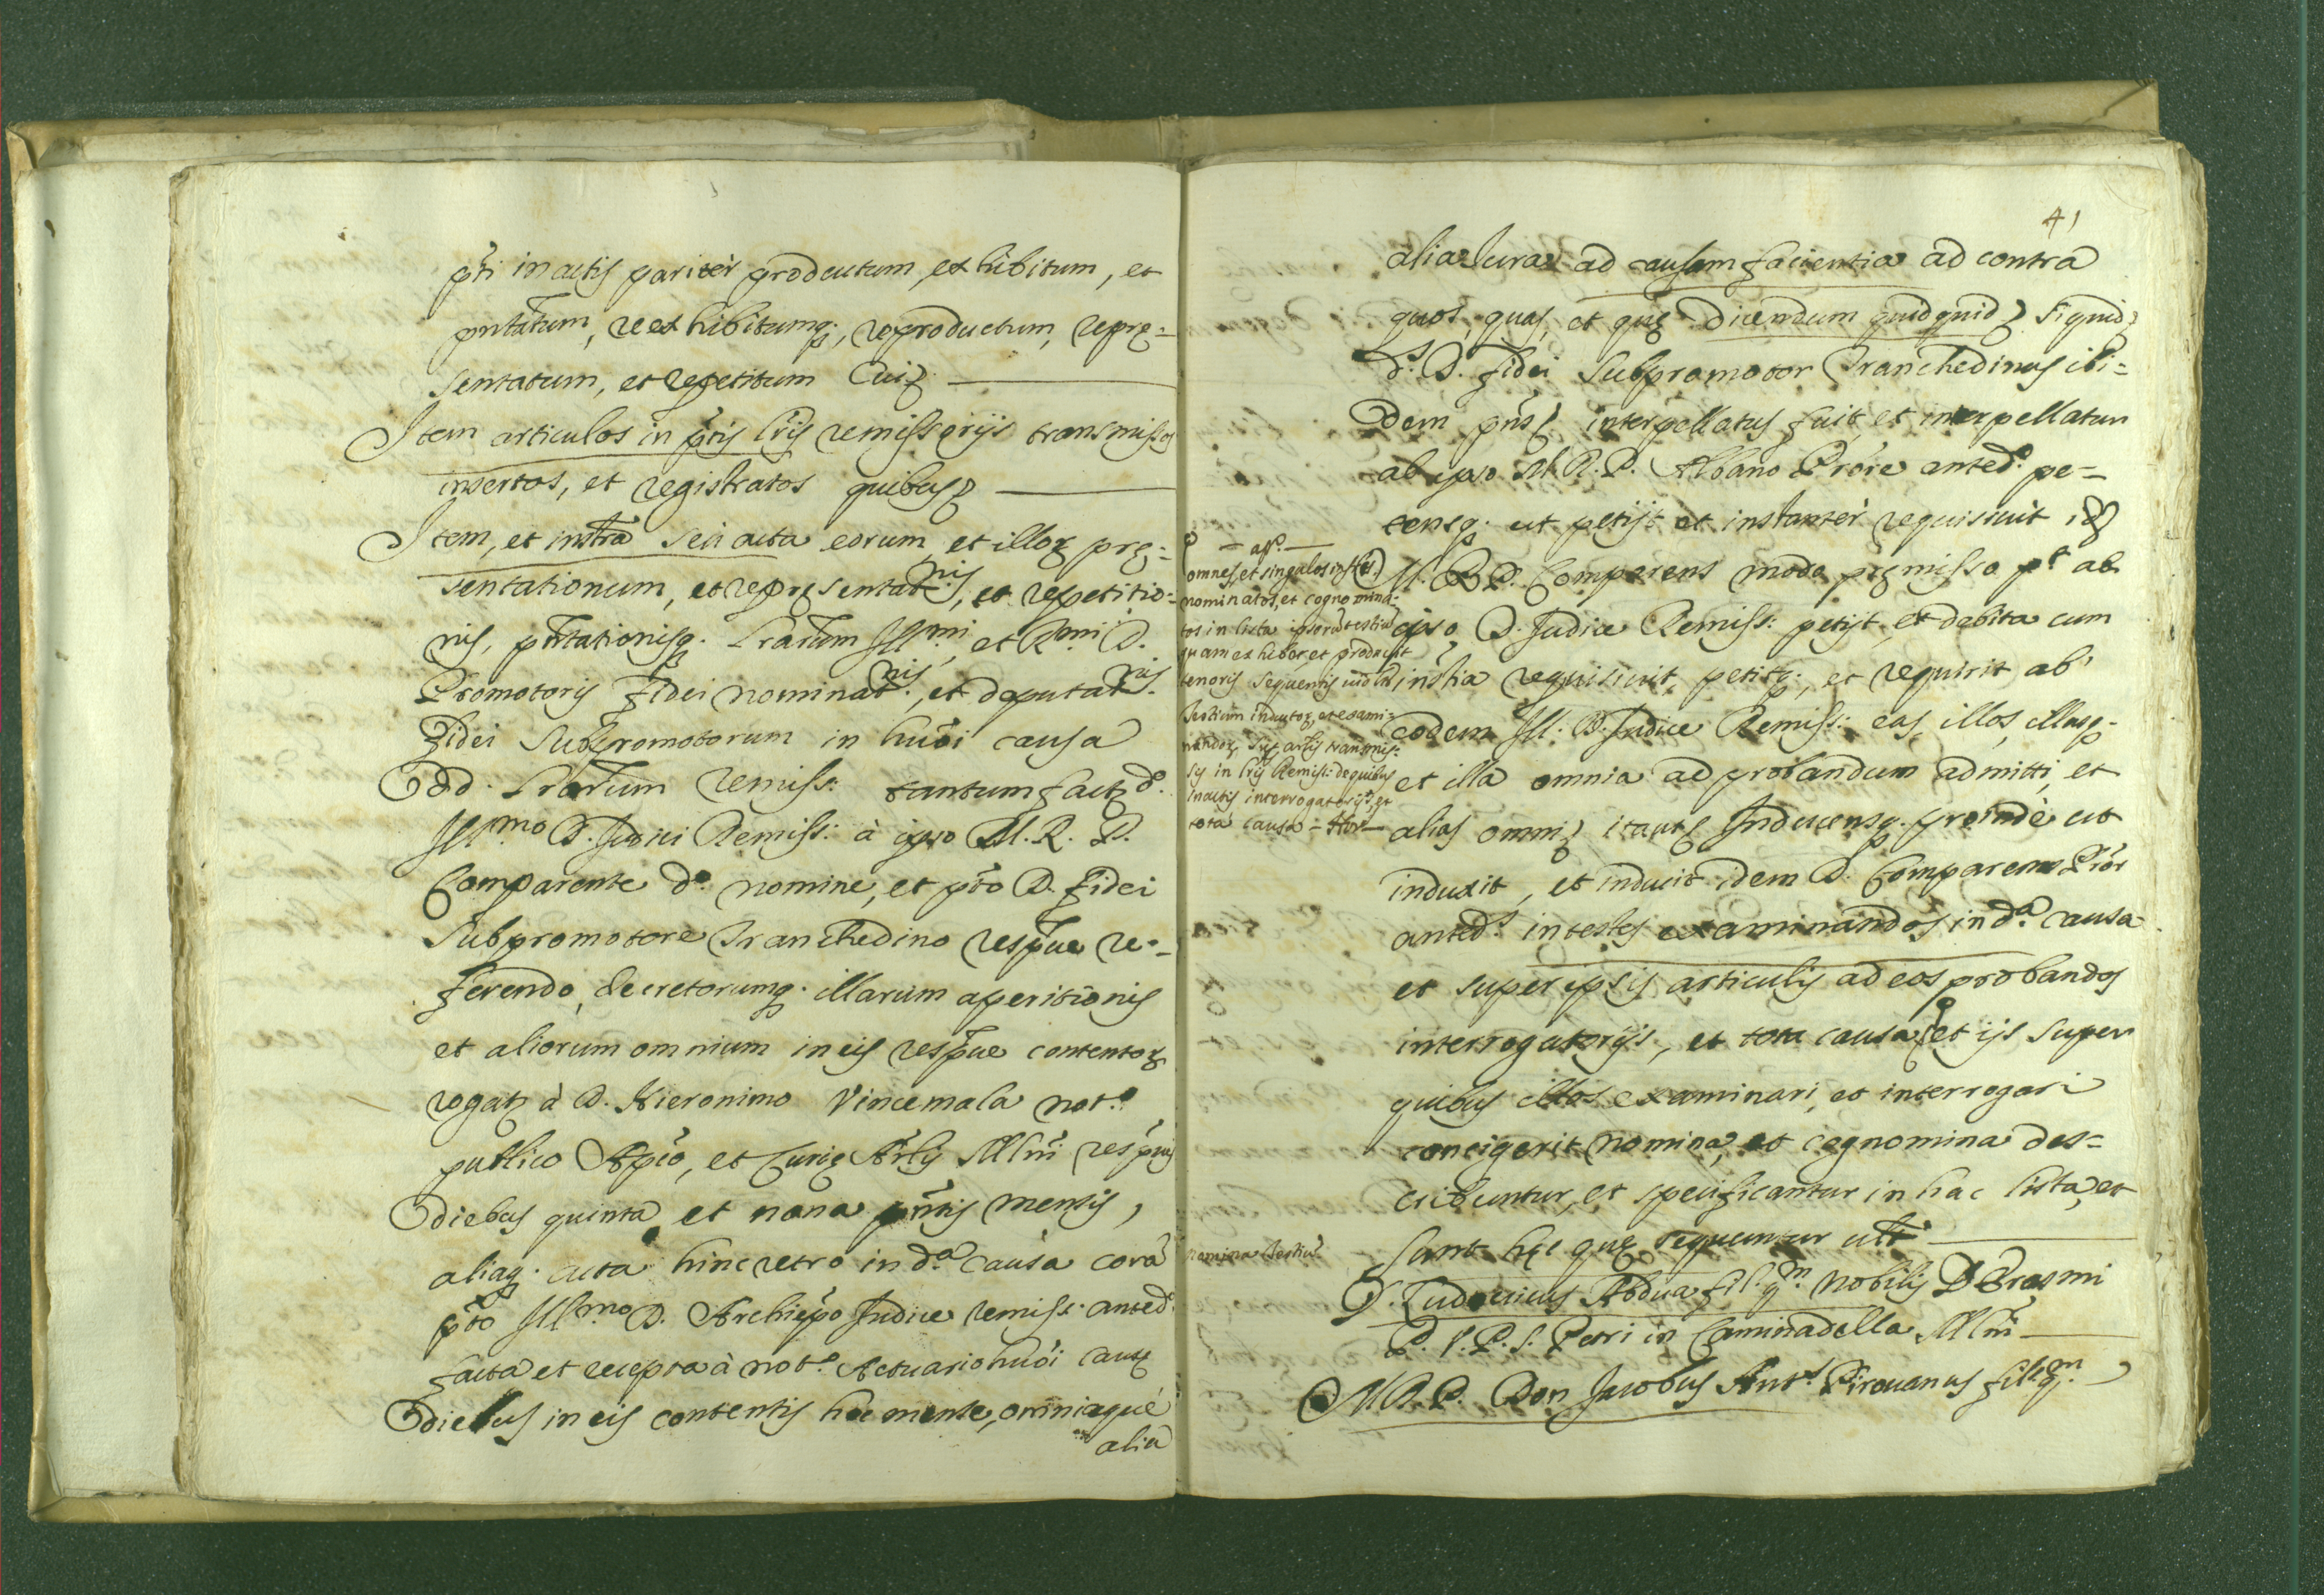 pti in actis pariter productum, exhibitum, et
pntatum, reexhibitumq;, reproductum, reprę=
sentatum, et repetitum Cui
Item articulos in ptis lris remissorijs transmissos
insertos, et registratos quibus
Item, et instra seu acta eorum, et illoꝝ prę=
sentationum, et repręsentatnis, et repetitio=
nis, pntationisq. lrarum Illmi, et Rmi D.
Promotoris fidei nominatnis, et deputatnis
fidei Subpromotorum in huoi causa
lrarum remiss: tantum fact do.
Illmo D. Judici Remiss: à ipso M. R. P.
Comparente do. nomine, et pto D. fidei
Subpromotore Tranchedino respue re=
ferendo, decretorumq. illarum aperitionis
et aliorum omnium in eis respue contentoꝝ
rogat à D. Hieronimo Vincemala noto.
publico Apco, et Curię Mlni
diebus quinta et nona pntis mensis,
aliaq. acta hinc retro in da. causa corã
pto Illmo D. Archiepo Judice remiss: anted.
facta et recepta à noto. Actuario huoi causę
diebus in eis contentis hoc mense, omniaque
alia
41
alia Jura ad causam facientia ad contra
quos, quas, et quę dicendum quidquid siquid
ds. D. fidei Subpromotor Tranchedinus ibi=
dem pns interpellatus fuit, et interpellatur
ab ipso M. R. P. Albano Priore anted. pe=
tensq. ut petijt et instanter requisivit
M. R. P. Comparens modo pręmisso ab
ipso D. Judice Remiss: petijt, et debita cum
instia requisivit, petitq;, et requirit ab
eodem Ill. D. Judice Remiss: eas, illos, illasq.
et illa omnia ad probandum admitti, et
alias omni Inducensq. proinde ut
induxit, et inducit idem D. Comparens Prior
anteds in testes examinandos in da. causa
et super ipsis articulis ad eos probandos
interrogatorijs, et tota causa et ijs super
quibus illos examinari, et interrogari
contigerit nomina, et cognomina des=
cribuntur, et specificantur in hac lista, et
sunt hęc quę sequuntur
D. Ludovicus Abdua fil. qm. Nobilis D. Erasmi
P. V. P. S. Petri in Caminadella Mlni
M. R. P. Don Jacobus Ants. Pirovanus fil. qm.
omnes, et singulos
nominatos, et cognomina=
tos in lista ipsorũ testiũ
quam exhibet, et producit
tenoris sequentis
Testium inductoꝝ, et exami=
nandoꝝ transmis=
sis in lris Remiss: de quibus
in actis interrogatorijs, et
tota causa
nomina testiũ